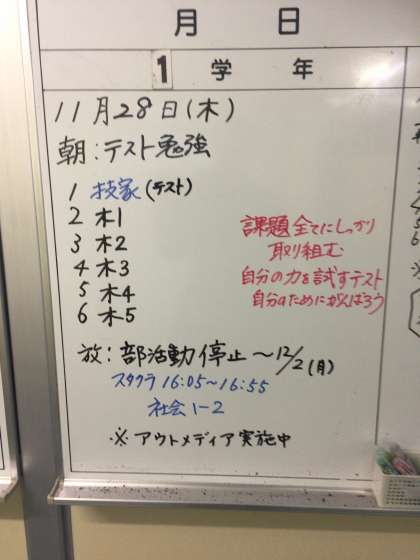 月 日
1 学 年
11月28日(木)
朝:テスト勉強
1 技家(テスト)
2 木1
3 木2
4 木3
5 木4
6 木5
課題全てにしっかり
取り組む
自分の力を試すテスト
自分のためにがんばろう
放:部活動停止～12/2(月)
スタクラ 16:05～16:55
社会1-2
※アウトメディア実施中